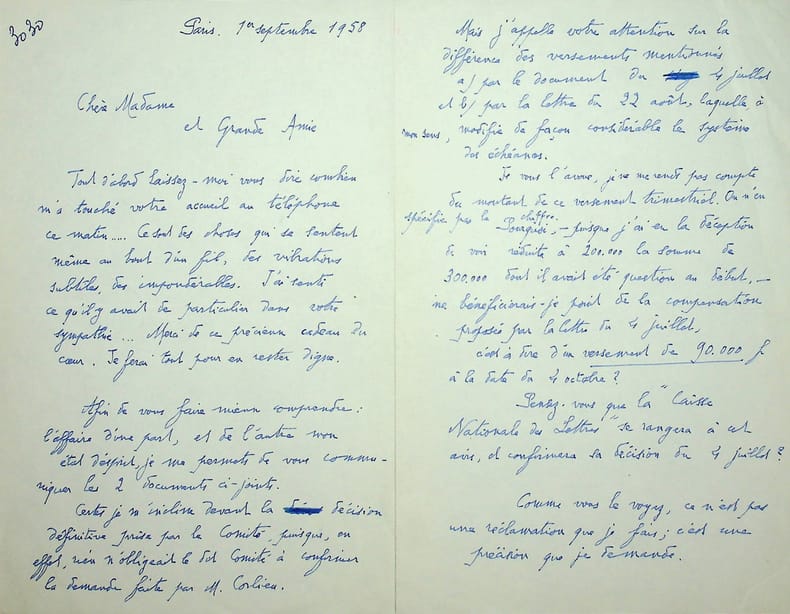 3030
Paris. 1er septembre 1958
Chère Madame
et Grande Amie
Tout d'abord laissez-moi vous dire combien
m'a touché votre accueil au téléphone
ce matin..... Ce sont des choses qui se sentent
même au bout d'un fil, des vibrations
subtiles, des impondérables. J'ai senti
ce qu'il y avait de particulier dans votre
sympathie... Merci de ce précieux cadeau du
cœur. Je ferai tout pour en rester digne.
Afin de vous faire mieux comprendre :
l'affaire d'une part, et de l'autre mon
état d'esprit, je me permets de vous commu-
niquer les 2 documents ci-joints.
Certes je m'incline devant la décision
définitive prise par le Comité, puisque, en
effet, rien n'obligeait le dit Comité à confirmer
la demande faite par M. Corlieu.
Mais j'appelle votre attention sur la
différence des versements mentionnés
a) par le document du 4 juillet
et b) par la lettre du 22 août, laquelle à
mon sens, modifie de façon considérable le système
des échéances.
Je vous l'avoue, je ne me rends pas compte
du montant de ce versement trimestriel. On n'en
spécifie pas le chiffre.
Pourquoi, - puisque j'ai eu la déception
de voir réduite à 200.000 la somme de
300.000 dont il avait été question au début, -
ne bénéficierais-je point de la compensation
proposée par la lettre du 4 juillet,
c'est à dire d'un versement de 90.000 f
à la date du 4 octobre ?
Pensez-vous que la "Caisse
Nationale des Lettres" se rangera à cet
avis, et confirmera sa décision du 4 juillet ?
Comme vous le voyez, ce n'est pas
une réclamation que je fais ; c'est une
précision que je demande.